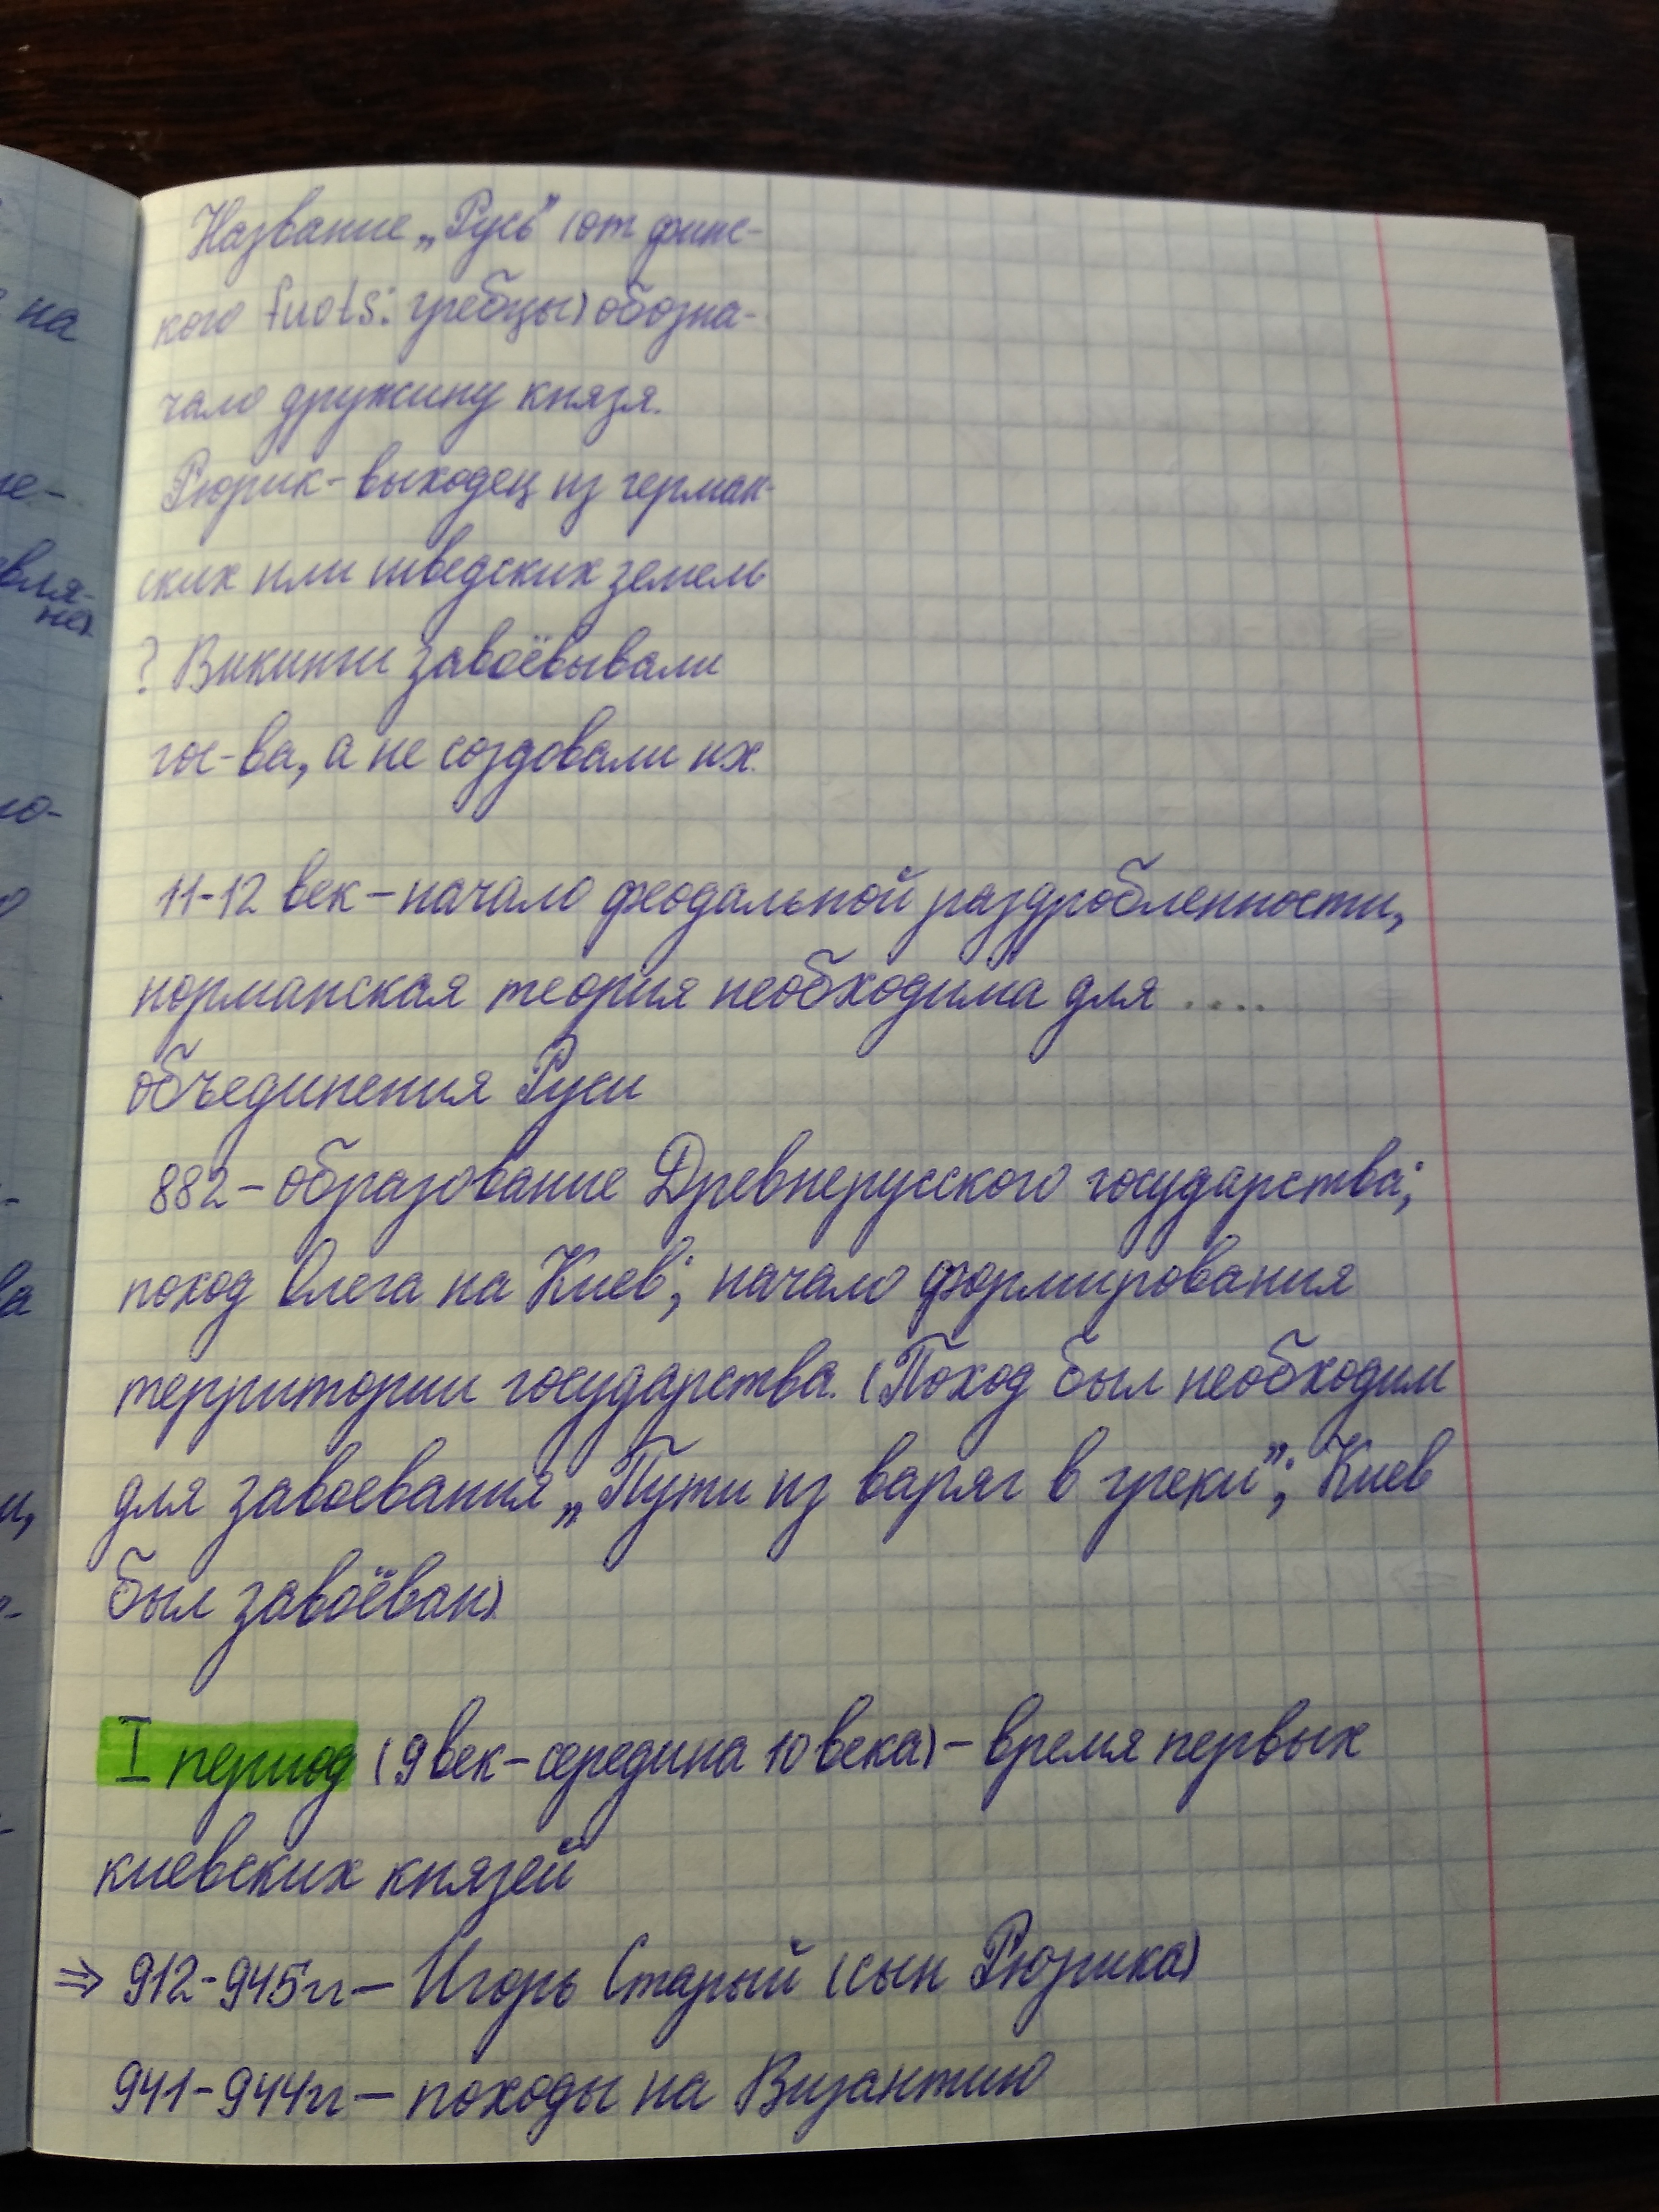 Название „Русь" (от финс-
кого fuots: гребцы) обозна-
чало дружину князя.
Рюрик - выходец из герман-
ских или шведских земель
? Викинги завоёвывали
гос-ва, а не создовали их.
11-12 век – начало феодальной раздробленности,
норманская теория необходима для ....
объединения Руси
882 – образование Древнерусского государства;
поход Олега на Киев; начало формирования
территории государства. (Поход был необходим
для завоевания „Пути из варяг в греки"; Киев
был завоёван)
I период (9 век – середина 10 века) – время первых
киевских князей
⇒ 912-945гг – Игорь Старый (сын Рюрика)
941-944гг – походы на Византию
на